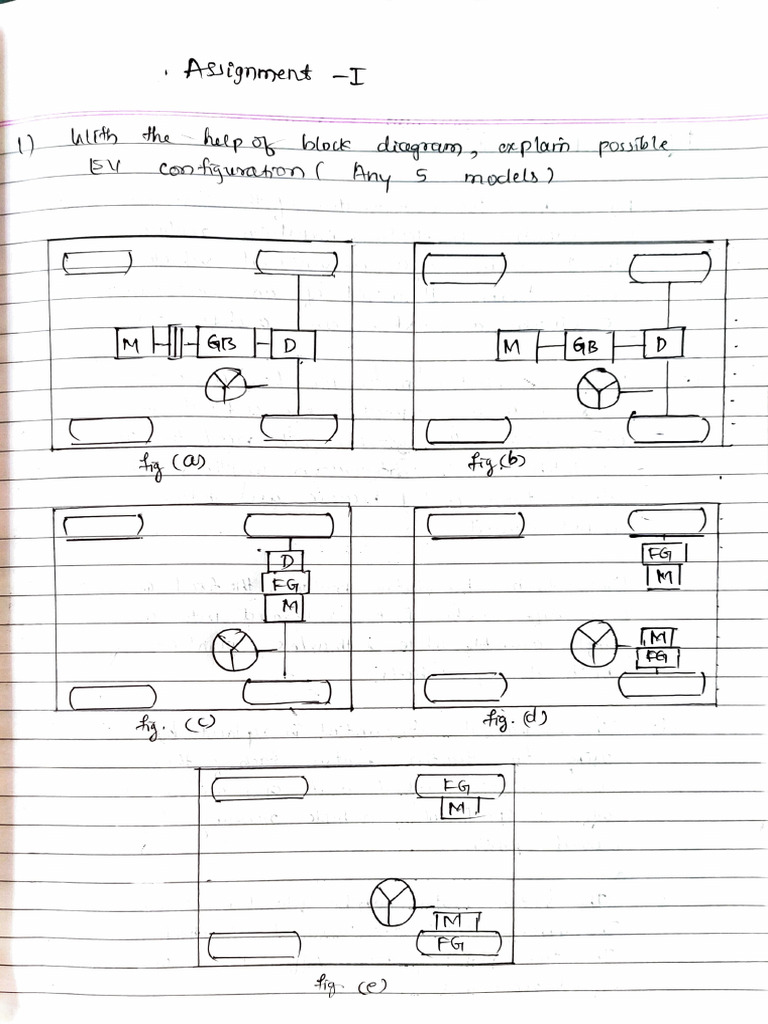 . Assignment - I
1) With the help of block diagram, explain possible
EV configuration ( Any 5 models )
M GB D
M GB D
fig (a)
fig.(b)
D
FG
M
FG
M
M
FG
fig. (c)
fig. (d)
FG
M
M
FG
fig. (e)